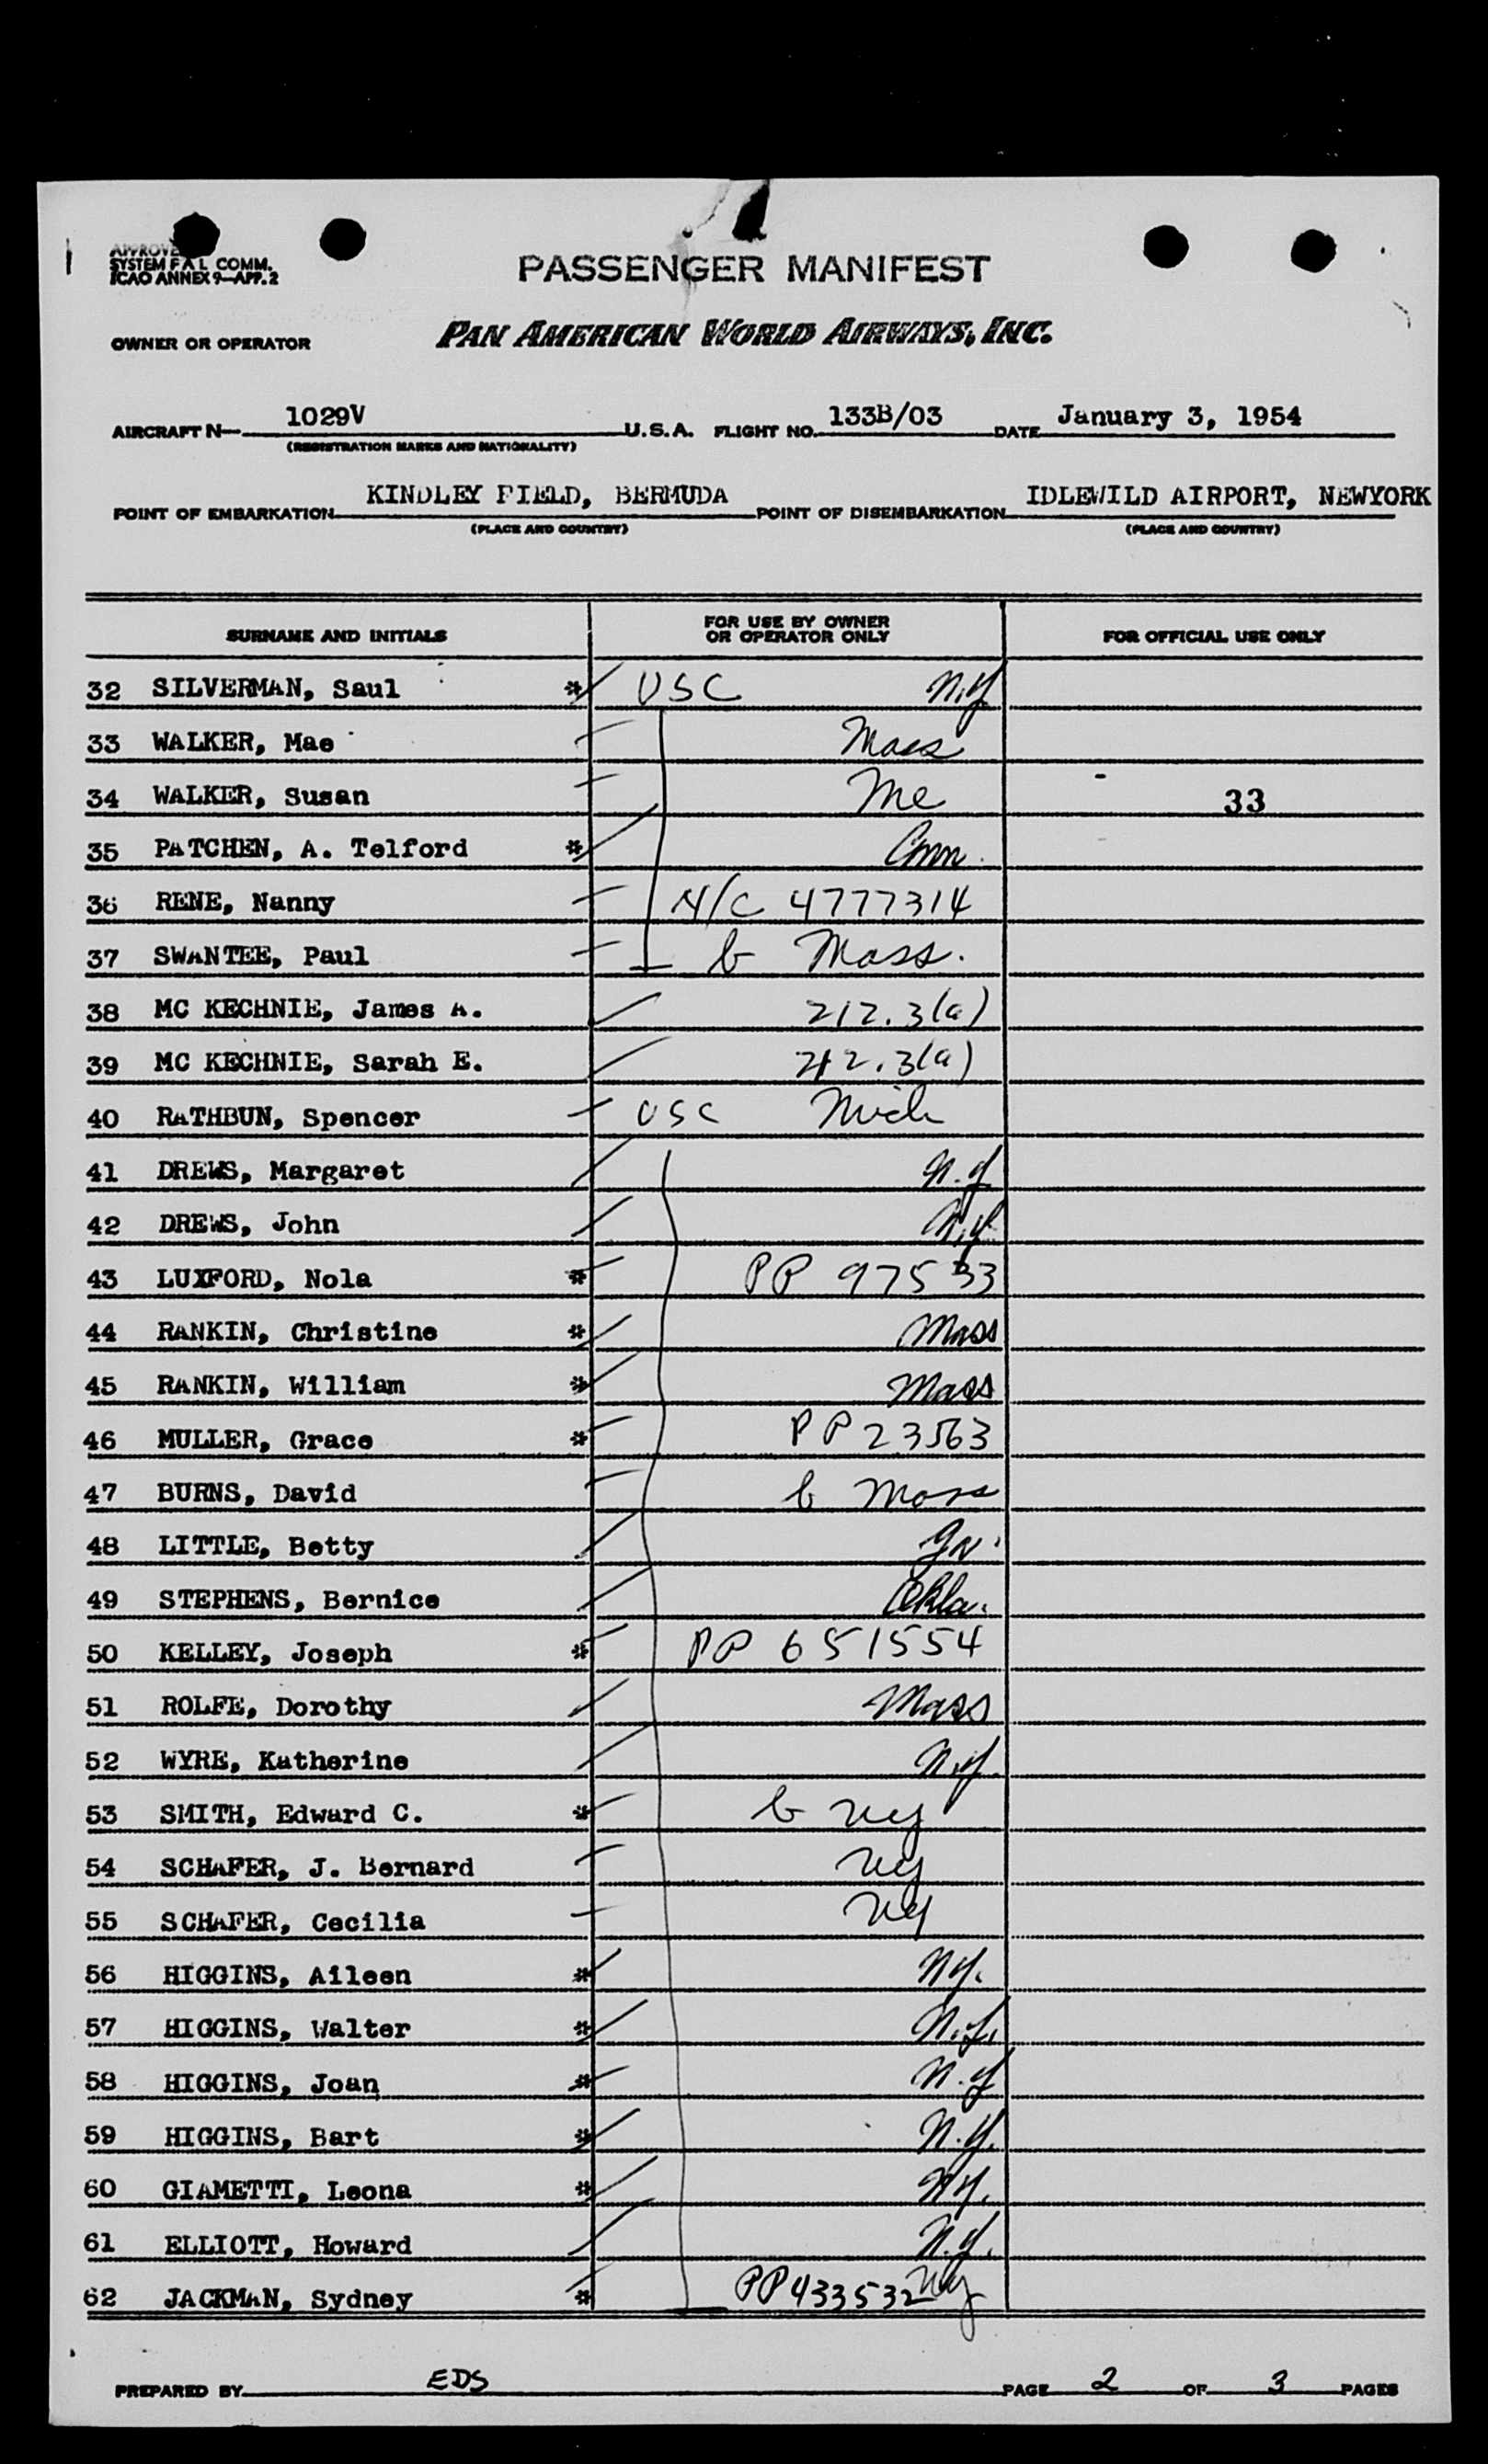 SYSTEM FAL COMM.
ICAO ANNEX 9—APP. 2
PASSENGER MANIFEST
OWNER OR OPERATOR PAN AMERICAN WORLD AIRWAYS, INC.
AIRCRAFT N— 1029V U.S.A. FLIGHT NO. 133B/03 DATE January 3, 1954
(REGISTRATION MARKS AND NATIONALITY)
POINT OF EMBARKATION KINDLEY FIELD, BERMUDA POINT OF DISEMBARKATION IDLEWILD AIRPORT, NEWYORK
(PLACE AND COUNTRY) (PLACE AND COUNTRY)
SURNAME AND INITIALS FOR USE BY OWNER OR OPERATOR ONLY FOR OFFICIAL USE ONLY
32 SILVERMAN, Saul * USC N.Y
33 WALKER, Mae Mass
34 WALKER, Susan Me 33
35 PATCHEN, A. Telford * Conn.
36 RENE, Nanny N/C 4777314
37 SWANTEE, Paul b Mass.
38 MC KECHNIE, James A. 212.3(a)
39 MC KECHNIE, Sarah E. 212.3(a)
40 RATHBUN, Spencer USC Mich
41 DREWS, Margaret N.J
42 DREWS, John
43 LUXFORD, Nola * PP 97533
44 RANKIN, Christine * Mass
45 RANKIN, William * Mass
46 MULLER, Grace * PP 23563
47 BURNS, David b Mass
48 LITTLE, Betty
49 STEPHENS, Bernice Okla.
50 KELLEY, Joseph * PP 651554
51 ROLFE, Dorothy Mass
52 WYRE, Katherine N.Y.
53 SMITH, Edward C. * b NY
54 SCHAFER, J. Bernard NY
55 SCHAFER, Cecilia NY
56 HIGGINS, Aileen * NY.
57 HIGGINS, Walter * N.Y.
58 HIGGINS, Joan * N.Y
59 HIGGINS, Bart * N.Y.
60 GIAMETTI, Leona * NY.
61 ELLIOTT, Howard N.Y.
62 JACKMAN, Sydney * PP433532 NY
PREPARED BY EDS PAGE 2 OF 3 PAGES